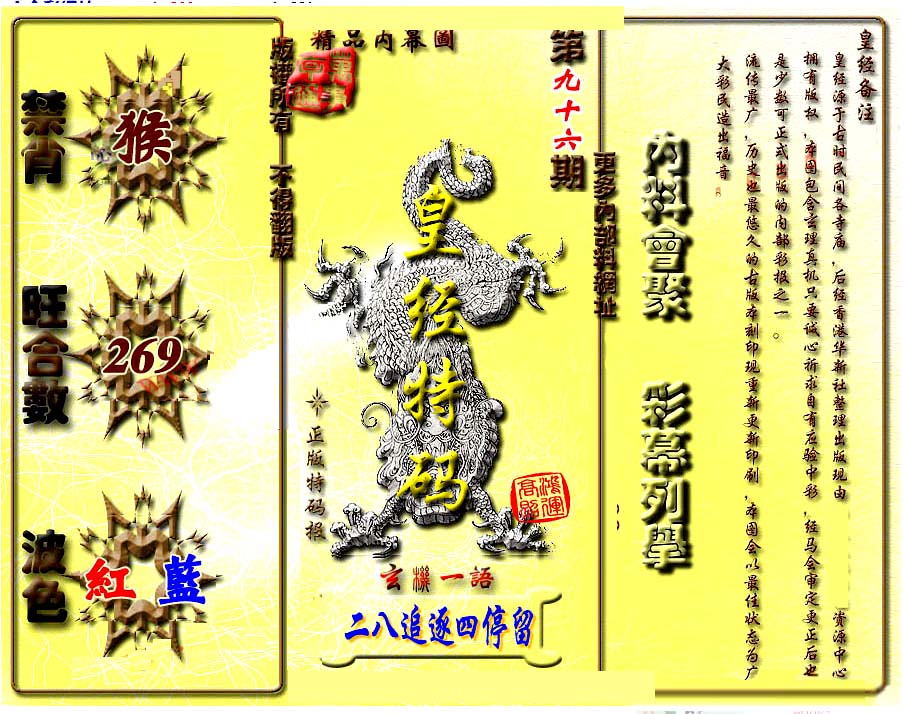 禁肖
猴
旺合數
269
波色
紅 藍
版權所有 不得翻版
精品內幕圖
第九十六期
皇经特码
正版特码报
鴻運高照
玄機一語
二八追逐四停留
更多內部料網址
內料會聚 彩幕列舉
皇经备注
皇经源于古时民间各寺庙,后经香港华新社整理出版现由 资源中心
拥有版权,本图包含玄理真机只要诚心祈求自有应验中彩,经马会审定更正后也
是少数可正式出版的内部彩报之一。
流传最广,历史也最悠久的古版本刻印现重新更新印刷,本图会以最佳状态为广
大彩民造出福音